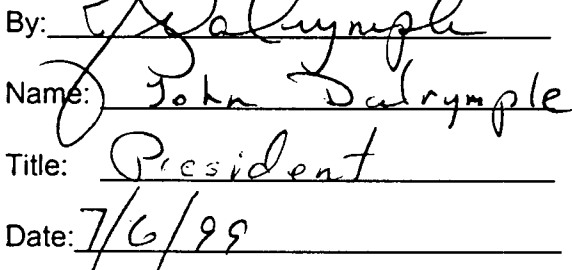 By: Dalrymple
Name: John Dalrymple
Title: President
Date: 7/6/99